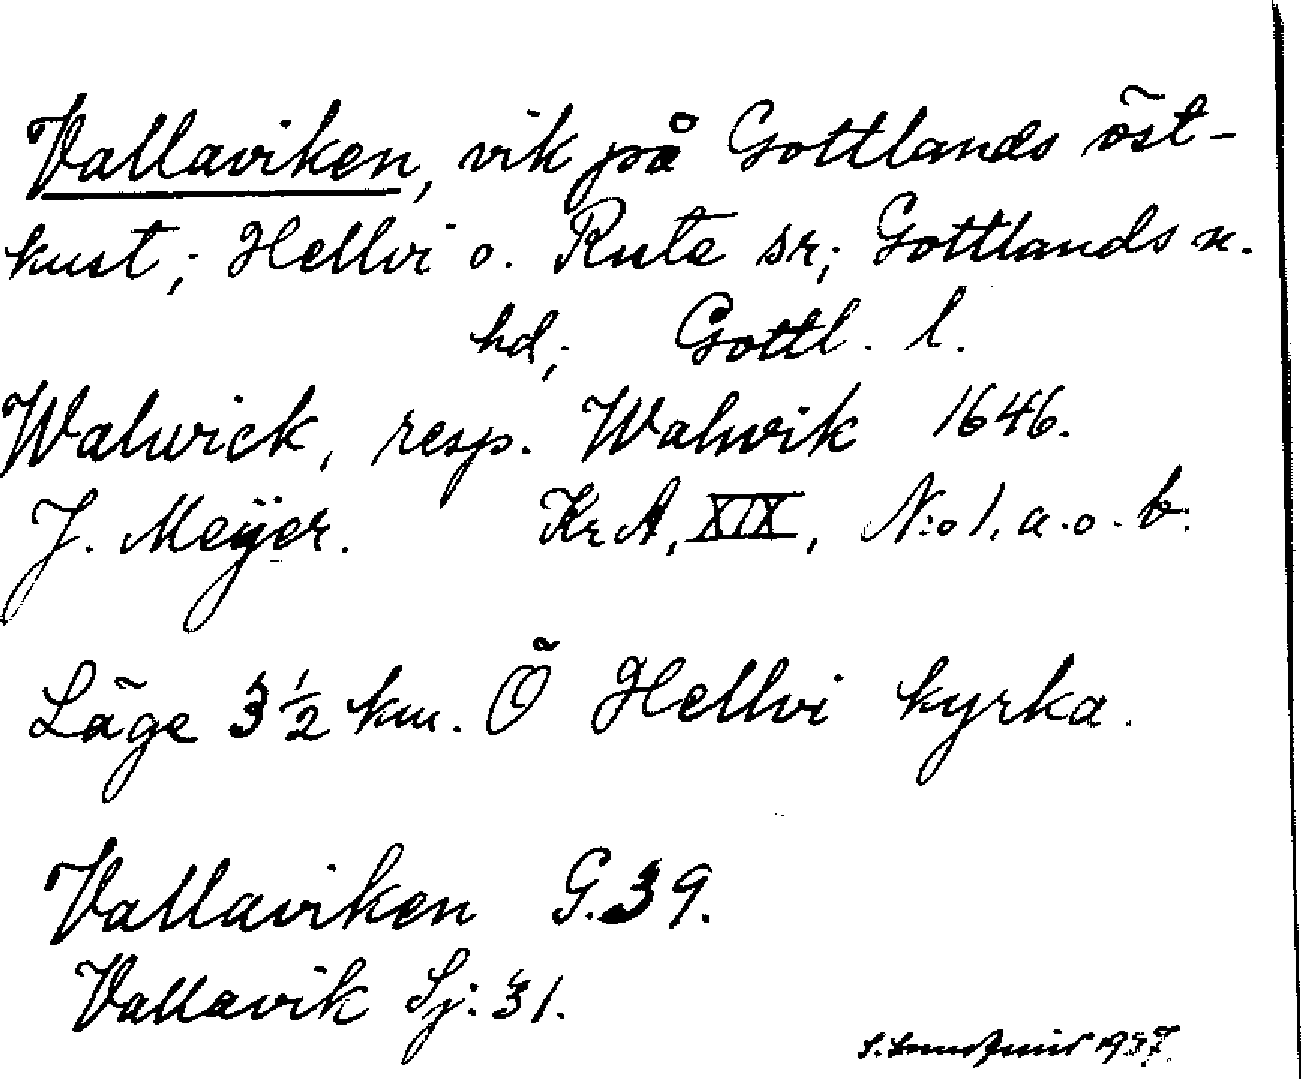 Vallaviken, vik på Gottlands öst-
kust; Hellvi o. Rute sr; Gottlands n.
hd; Gottl. l.
Walwick, resp. Walwik 1646.
J. Meÿer. KrA, XIX, N:o 1. a. o. b.
Läge 3 1/2 km. Ö Hellvi kyrka.
Vallaviken G. 39.
Vallavik Sj: 31.
1937.